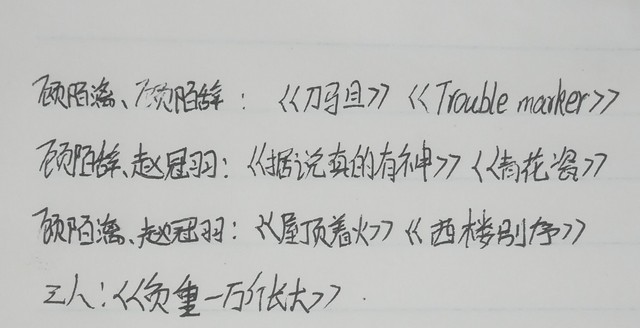 顾陌漓、顾陌辞：《刀马旦》《Trouble marker》
顾陌辞、赵冠羽：《据说真的有神》《青花瓷》
顾陌漓、赵冠羽：《屋顶着火》《西楼别序》
三人：《负重一万斤长大》.